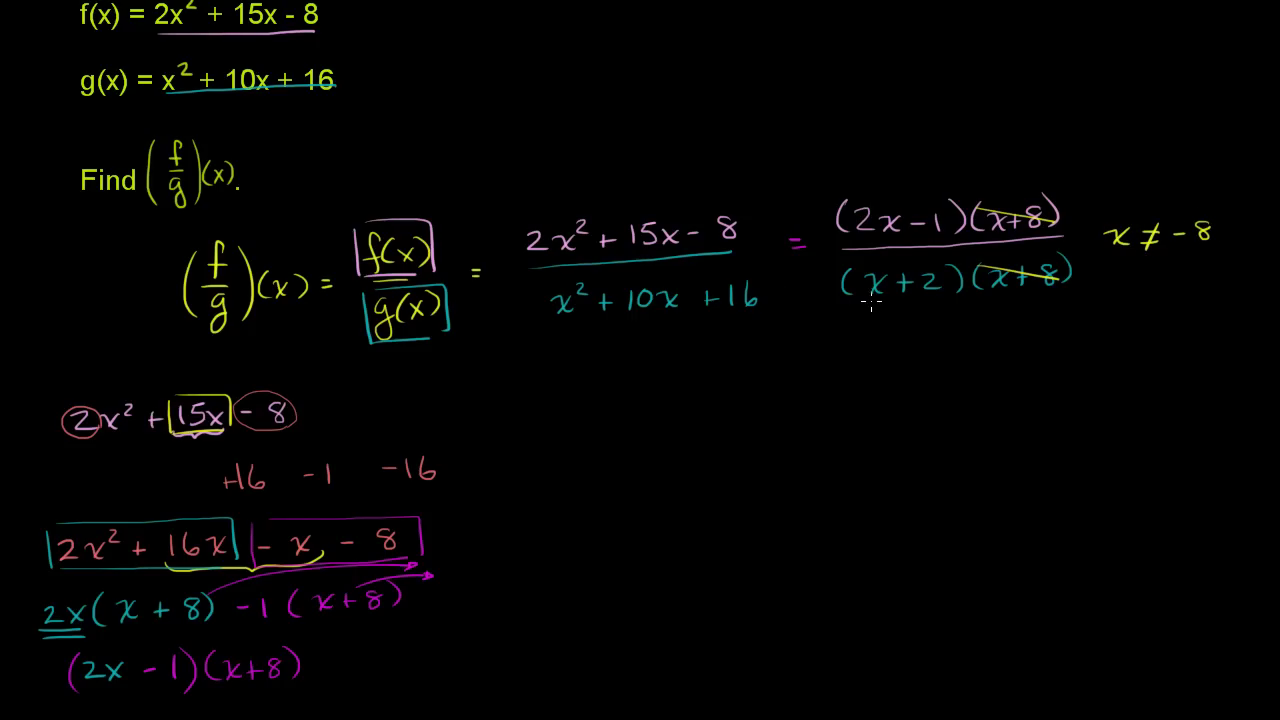 f(x) = 2x² + 15x - 8
g(x) = x² + 10x + 16
Find (f/g)(x).
(f/g)(x) = f(x)/g(x) = (2x² + 15x - 8)/(x² + 10x + 16) = (2x - 1)(x+8)/(x + 2)(x+8) x ≠ -8
2x² + 15x - 8
+16 -1 -16
2x² + 16x - x - 8
2x(x + 8) -1(x+8)
(2x - 1)(x+8)